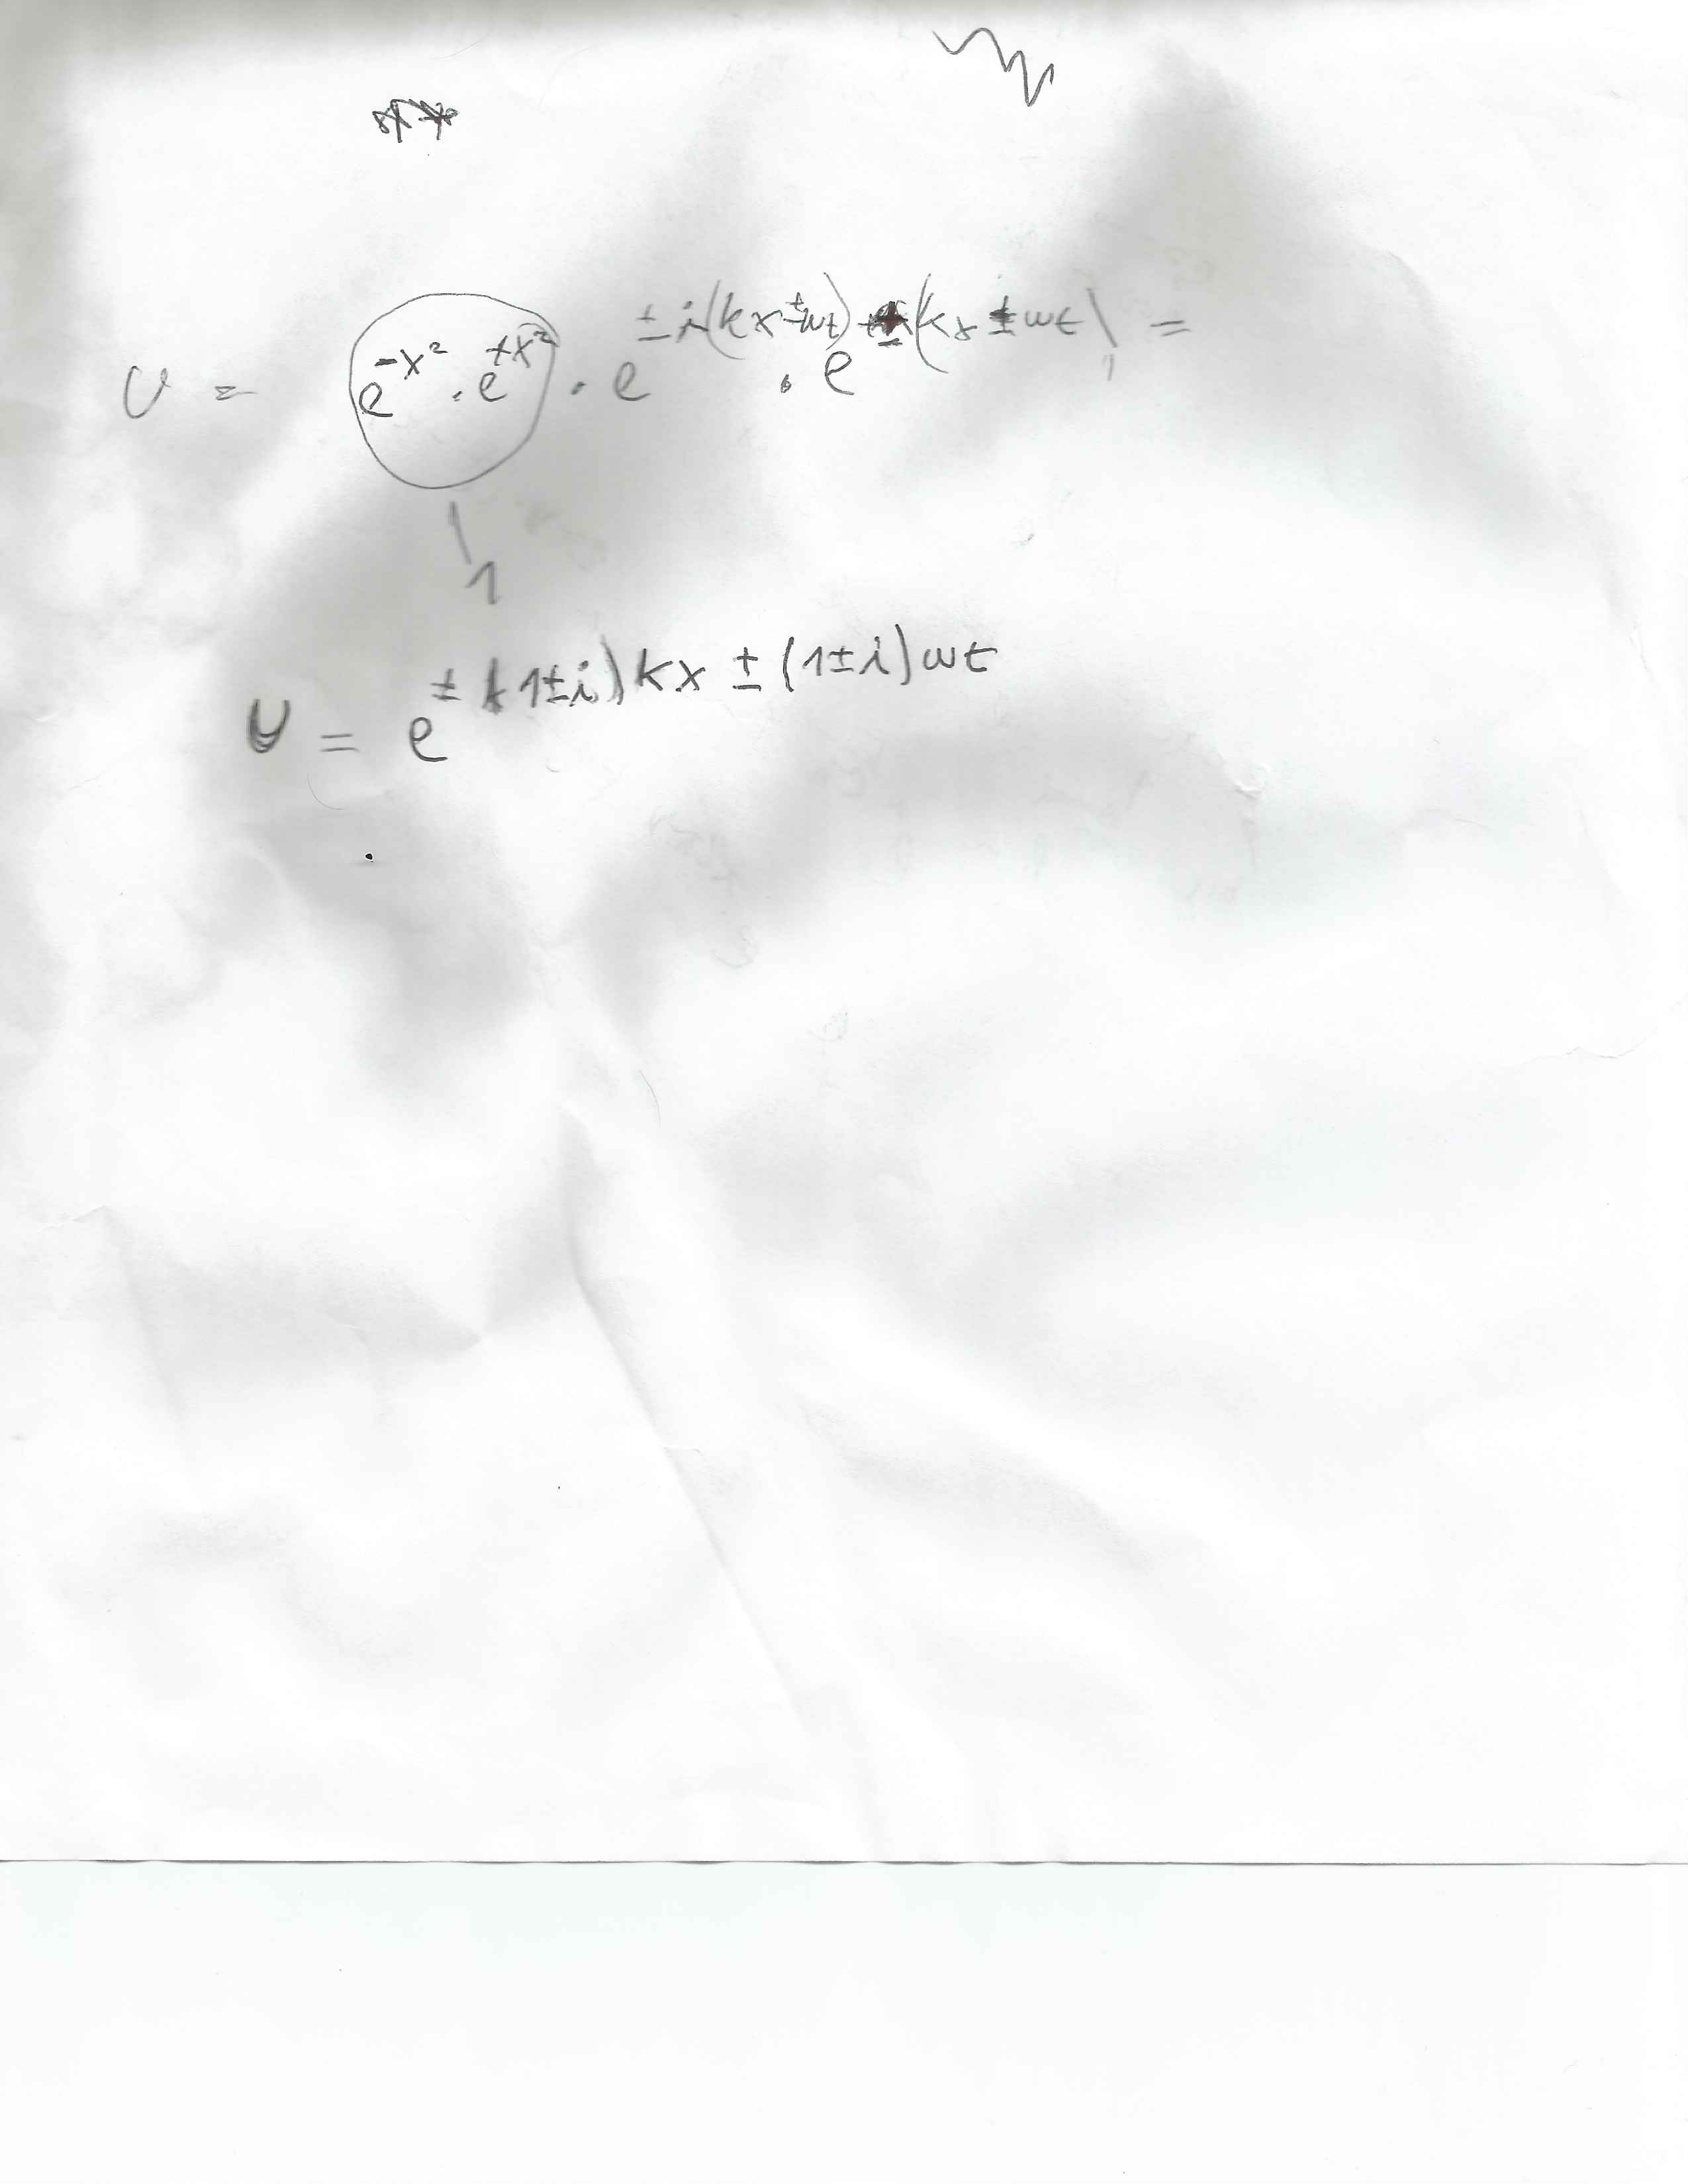 U = e^{-x²} · e^{+x²} · e^{±i(kx±wt)} · e^{±(kx±wt)} =
1
U = e^{±(1±i)kx ± (1±i)wt}